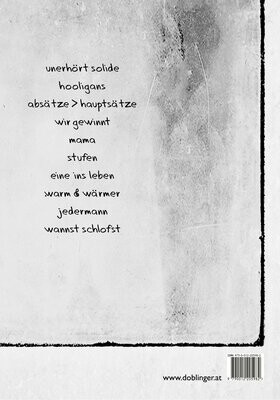 unerhört solide
hooligans
absätze > hauptsätze
wir gewinnt
mama
stufen
eine ins leben
warm & wärmer
jedermann
wannst schlofst
www.doblinger.at